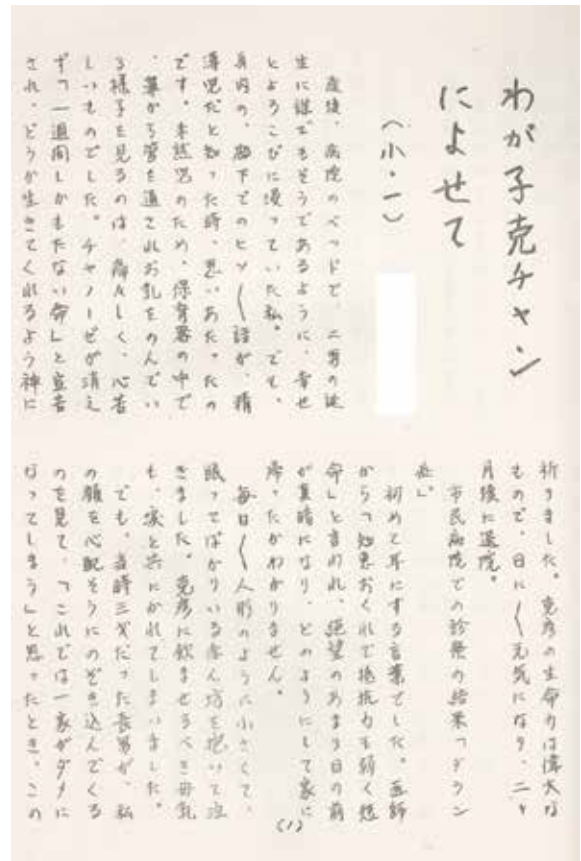 わが子克チャン
によせて
(小・一)
産後、病院のベッドで、二男の誕
生に誰でもそうであるように、幸せ
とよろこびに浸っていた私。でも、
身内の、廊下でのヒソ〱話が、精
薄児だと知った時、思いあた。たの
です。未熟児のため、保育器の中で
、鼻から管を通されお乳をのんでい
る様子を見るのは、痛々しく、心苦
しいものでした。チャノーゼが消え
ず「一週間しかもたない命」と宣告
され、どうか生きてくれるよう神に
祈りました。克彦の生命力は偉大な
もので、日に〱元気になり、二ヶ
月後に退院。
市民病院での診察の結果「ダウン
症」。
初めて耳にする言葉でした。医師
から「知恵おくれで抵抗力も弱く短
命」と言われ、絶望のあまり目の前
が真暗になり、どのようにして家に
帰ったかわかりません。
毎日〱人形のように小さくて、
眠ってばかりいる赤ん坊を抱いて泣
きました。克彦に飲ませるべき母乳
も、涙と共にかれてしまいました。
でも、当時三才だった長男が、私
の顔を心配そうにのぞき込んでくる
のを見て、「これでは一家がダメに
なってしまう」と思ったとき、この
(1)